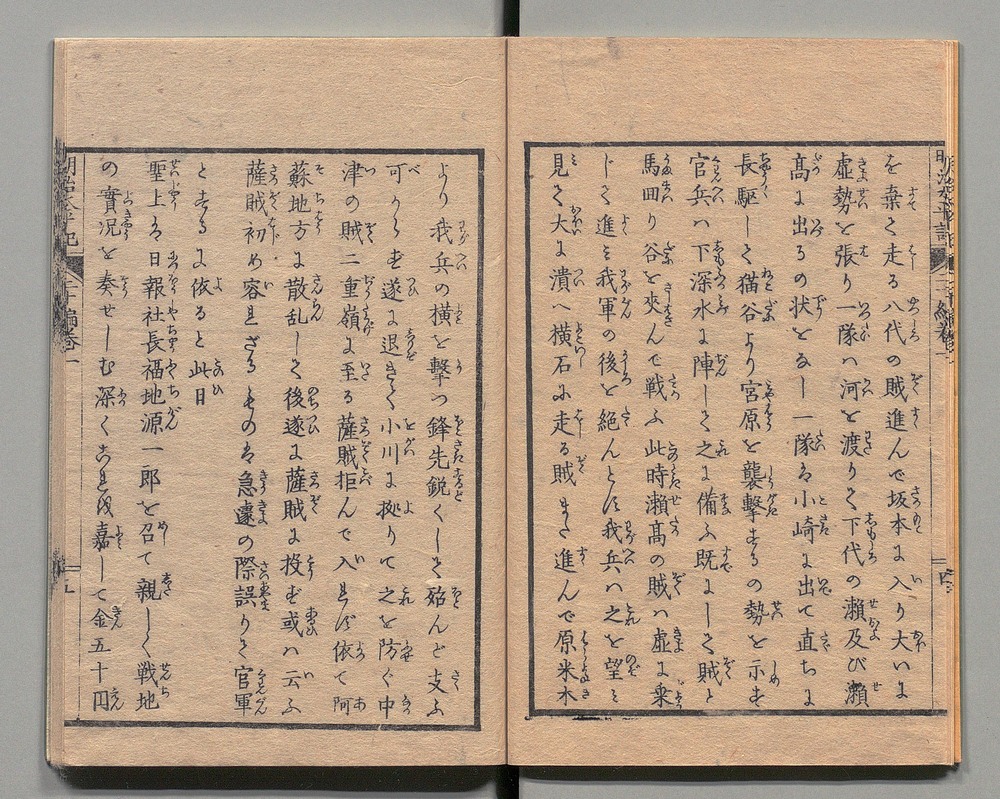 を棄て走る八代の賊進んで坂本に入り大いに
虚勢を張り一隊ハ河を渡りて下代の瀬及び瀬
高に出るの状をなし一隊ハ小崎に出て直ちに
長駆して猫谷より宮原を襲撃するの勢を示す
官兵ハ下深水に陣して之に備ふ既にして賊と
馬廻り谷を夾んで戦ふ此時瀬高の賊ハ虚に乗
じて進ミ我軍の後を絶んとす我兵ハ之を望ミ
見て大に潰へ横石に走る賊まて進んで原米木
より我兵の横を撃つ鋒先鋭くして殆んど支ふ
可からず遂に退きて小川に拠りて之を防ぐ中
津の賊二重嶺に至る薩賊拒んで入れず依て阿
蘇地方に散乱して後遂に薩賊に投ず或ハ云ふ
薩賊初め容れざるものハ急遽の際誤りて官軍
とするに依ると此日
聖上ハ日報社長福地源一郎を召て親しく戦地
の實况を奏せしむ深くこれを嘉して金五十円
明治太平記
二十編巻一
五